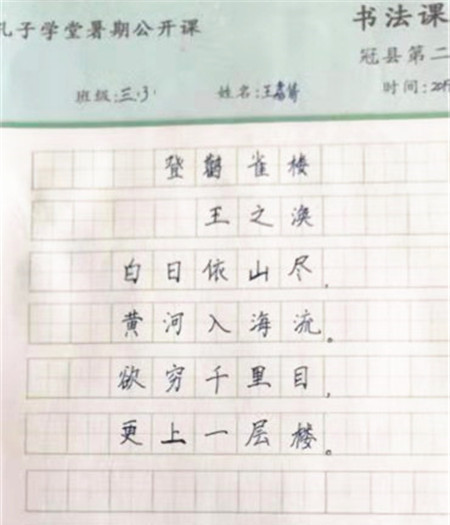 孔子学堂暑期公开课
书法课
冠县第二
班级:三·3
姓名:王
时间:201
登鹳雀楼
王之涣
白日依山尽,
黄河入海流。
欲穷千里目,
更上一层楼。